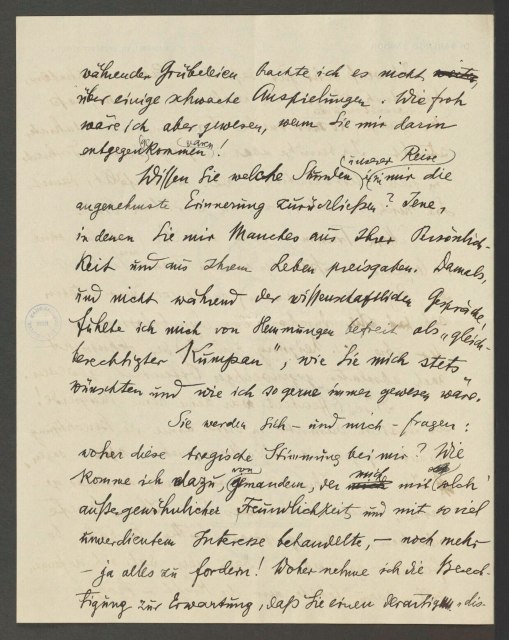 währenden Grübeleien brachte ich es nicht weiter,
über einige schwache Anspielungen. Wie froh
wäre ich aber gewesen, wenn Sie mir darin
entgegengekommen wären!
Wissen Sie welche Stunden unserer Reise in mir die
angenehmste Erinnerung zurückließen? Jene,
in denen Sie mir Manches aus Ihrer Persönlich-
keit und aus Ihrem Leben preisgaben. Damals,
und nicht während der wissenschaftlichen Gespräche,
fühlte ich mich von Hemmungen befreit als „gleich-
berechtigter Kumpan“, wie Sie mich stets
wünschten und wie ich so gerne immer gewesen wäre.
Sie werden sich – und mich – fragen:
woher diese tragische Stimmung bei mir? Wie
komme ich dazu, von jemandem, der mich mit solch'
außergewöhnlicher Freundlichkeit und mit so viel
unverdientem Interesse behandelte, – noch mehr
– ja alles zu fordern! Woher nehme ich die Berech-
tigung zur Erwartung, daß Sie einen derartigen, dis-